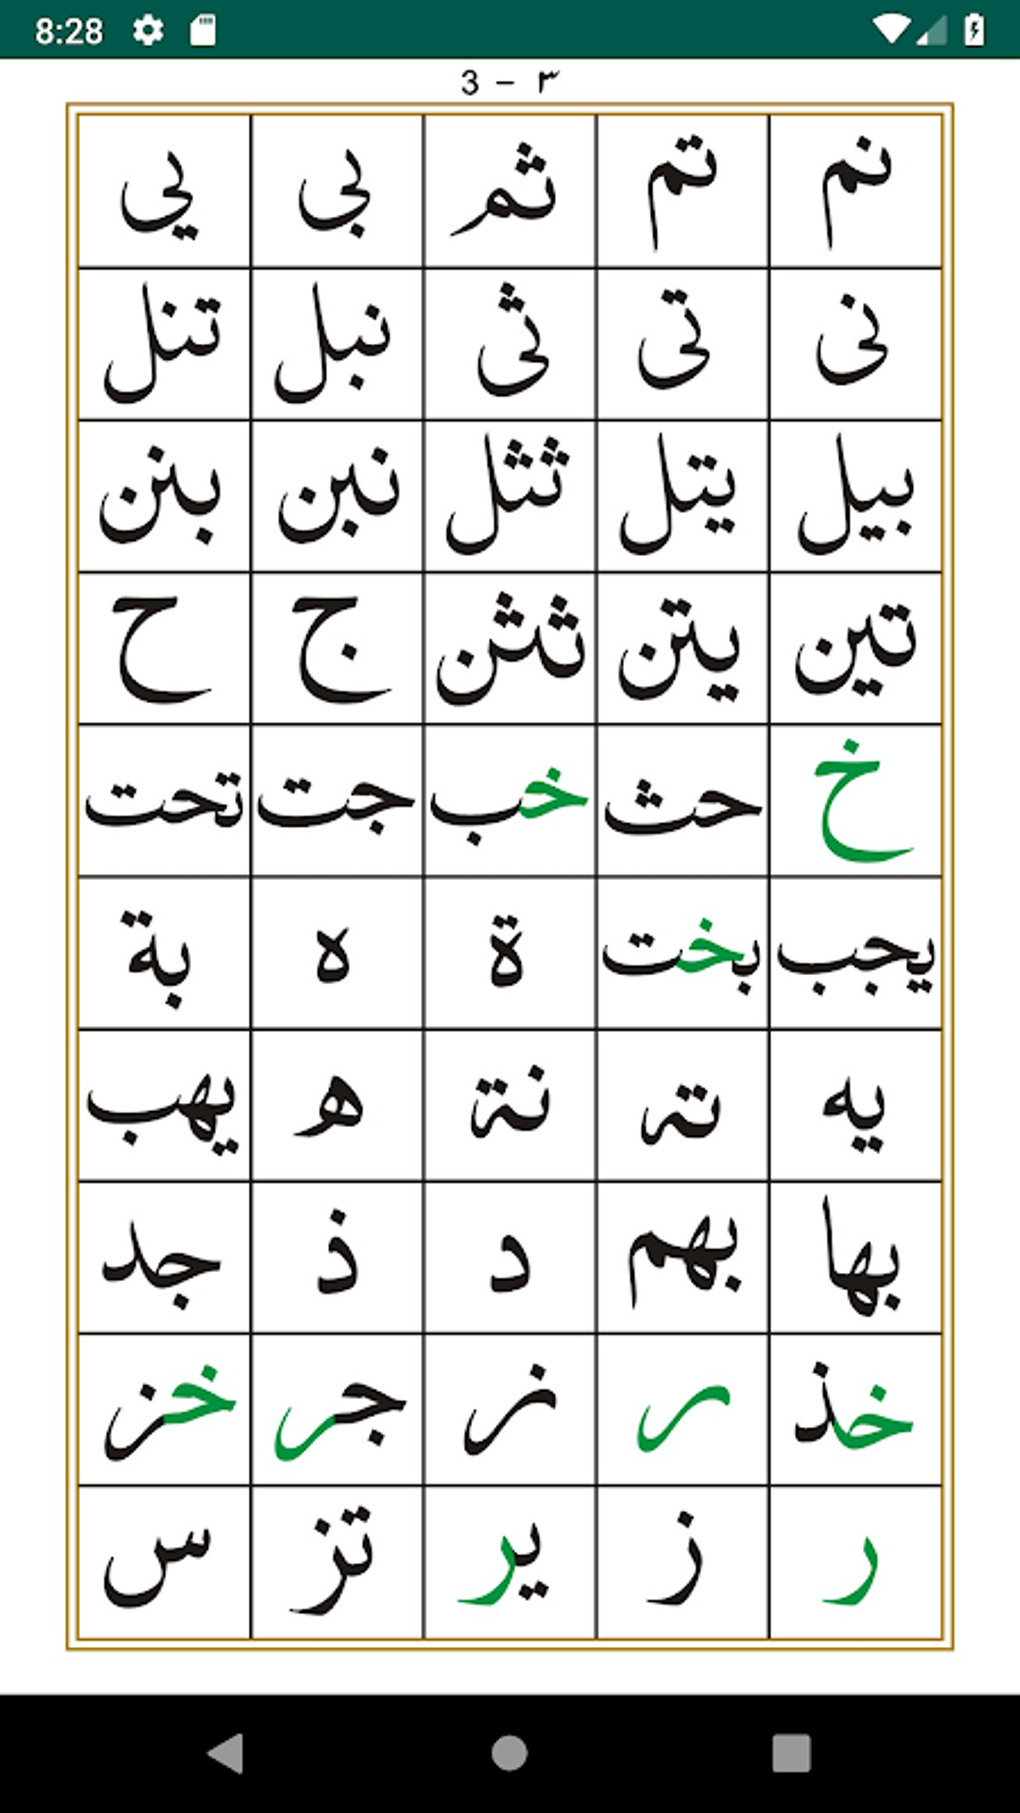 8:28
3 - ٣
نم تم ثم بي يي
ني تي ثي نبل تنل
بيل يتل ثثل نبن بنن
تين يتن ثثن ج ح
خ حث خب جت تحت
يجب بخت ة ه بة
يه ته نة ه يهب
بها بهم د ذ جد
خذ ر ز جر خز
ر ز ير تز س